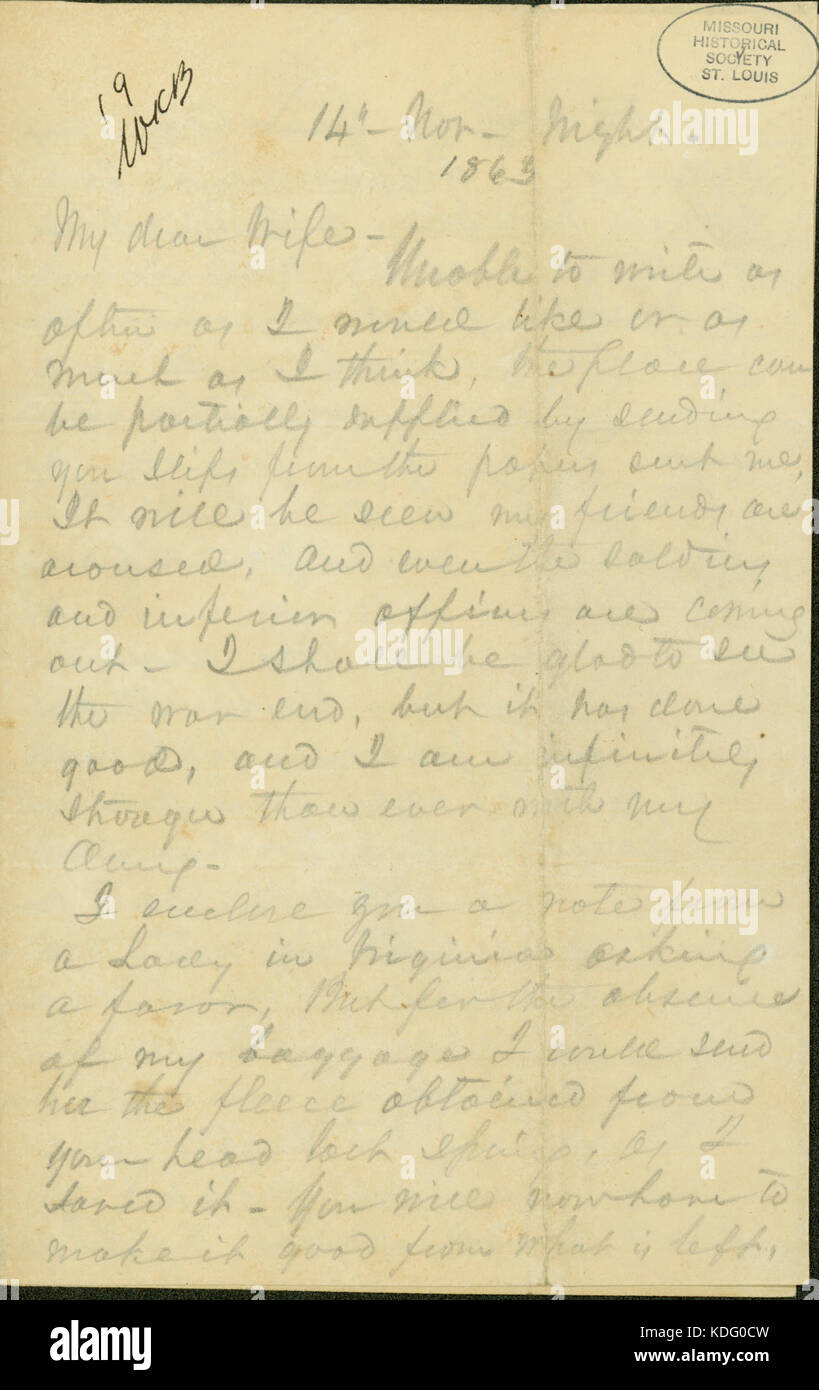 MISSOURI
HISTORICAL
SOCIETY
ST. LOUIS
19
WKB
14" - Nov - Night.
1863
My dear Wife -
Unable to write as
often as I would like or as
much as I think, the place can
be partially supplied by sending
you slips from the papers sent me.
It will be seen my friends are
aroused, and even the soldiers
and inferior officers are coming
out - I shall be glad to see
the war end, but it has done
good, and I am infinitely
stronger than ever with my
Army -
I enclose you a note from
a Lady in Virginia asking
a favor, But for the absence
of my baggage I would send
her the fleece obtained from
your head last spring, as I
saved it - You will now have to
make it good from what is left.
alamy
Image ID: KDG0CW
www.alamy.com